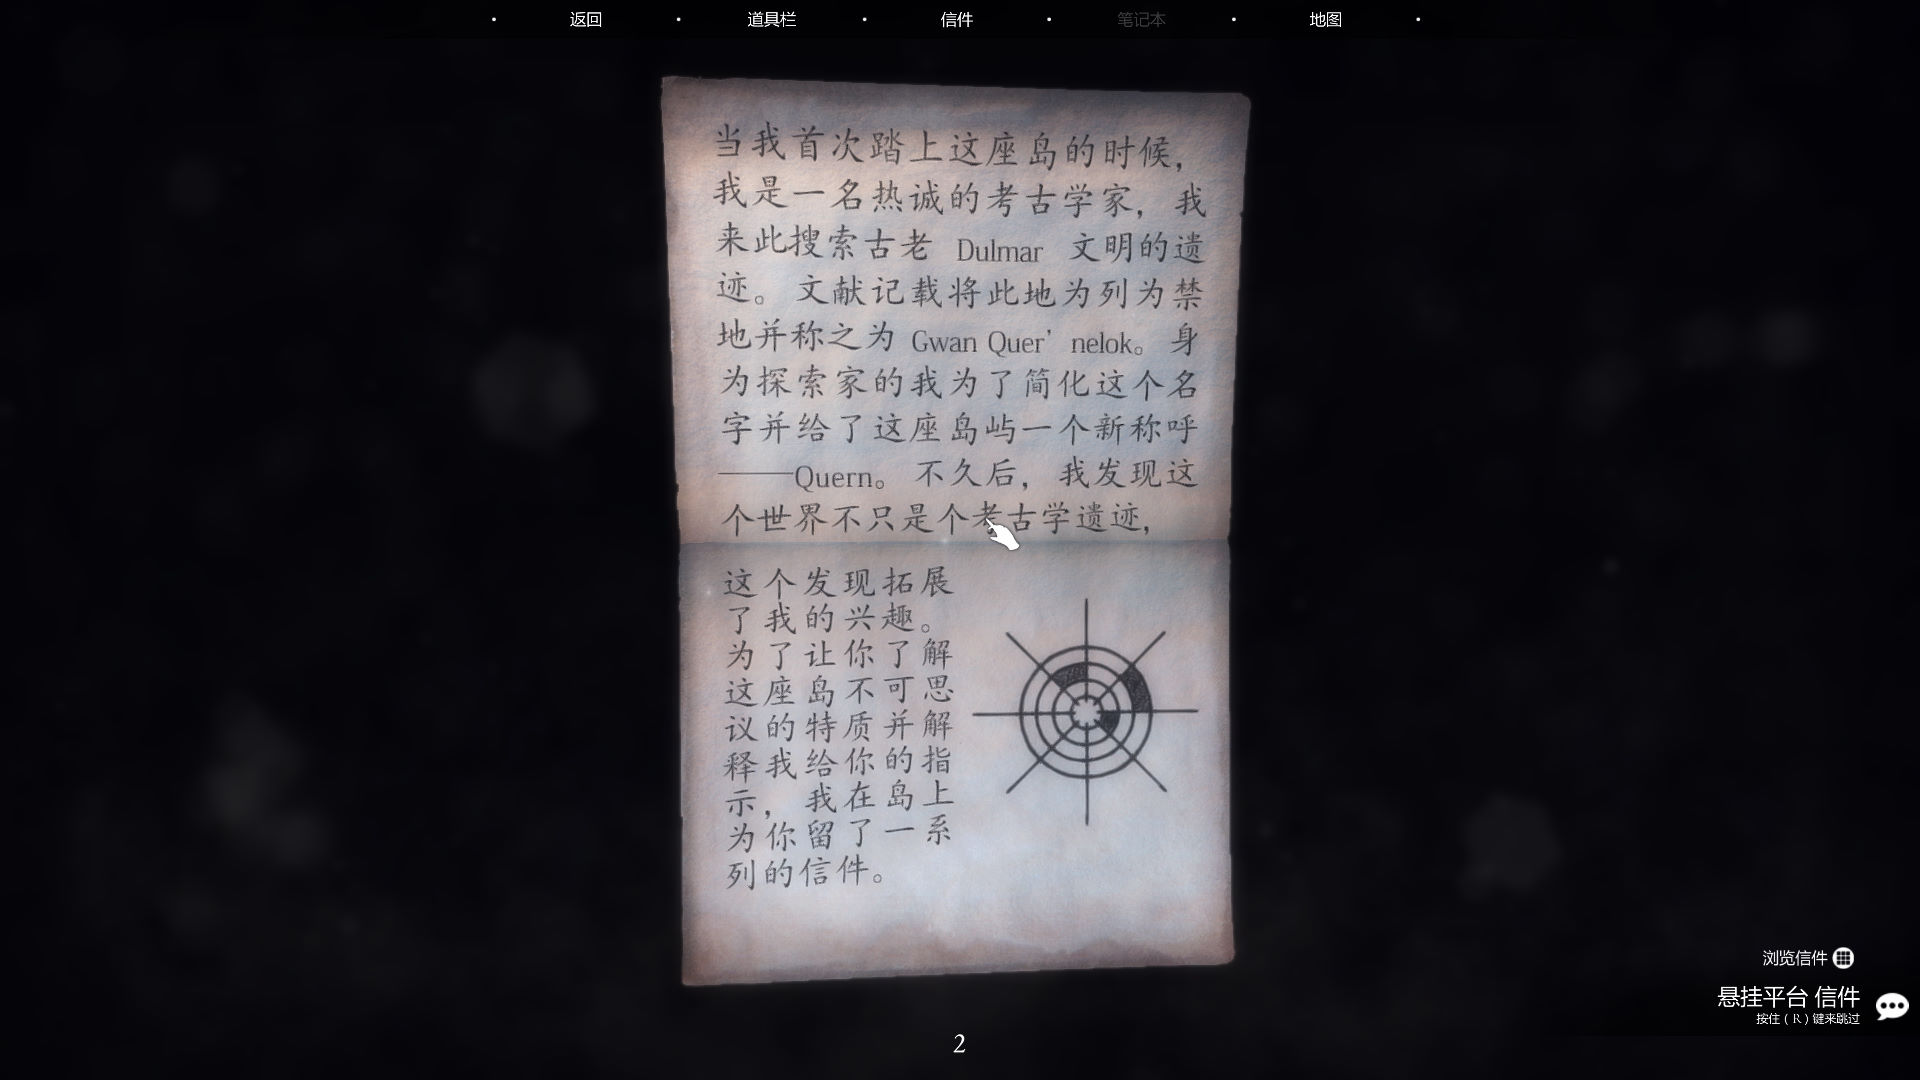 返回
道具栏
信件
笔记本
地图
当我首次踏上这座岛的时候，
我是一名热诚的考古学家，我
来此搜索古老 Dulmar 文明的遗
迹。文献记载将此地为列为禁
地并称之为 Gwan Quer’nelok。身
为探索家的我为了简化这个名
字并给了这座岛屿一个新称呼
——Quern。不久后，我发现这
个世界不只是个考古学遗迹，
这个发现拓展
了我的兴趣。
为了让你了解
这座岛不可思
议的特质并解
释我给你的指
示，我在岛上
为你留了一系
列的信件。
浏览信件
悬挂平台 信件
按住（R）键来跳过
2